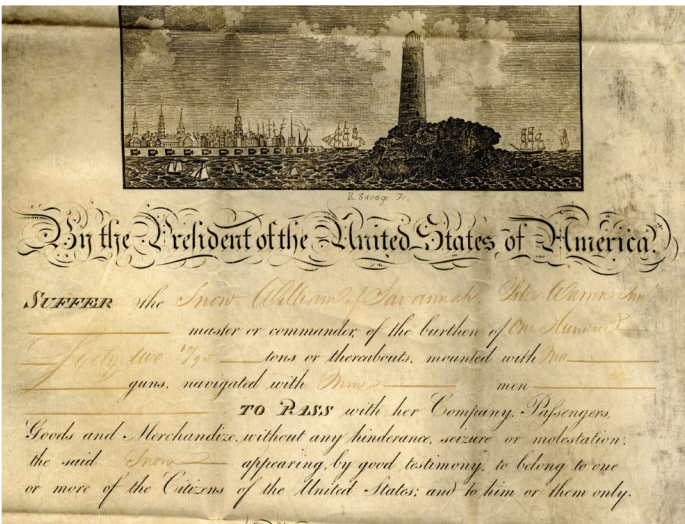 E. Savage Fc.
By the President of the United States of America.
SUFFER the Snow William of Savannah, Warren
master or commander, of the burthen of One Hundred
two tons or thereabouts, mounted with No
guns, navigated with Nine men
TO PASS with her Company, Passengers,
Goods and Merchandize, without any hinderance, seizure or molestation:
the said Snow appearing, by good testimony, to belong to one
or more of the Citizens of the United States; and to him or them only.